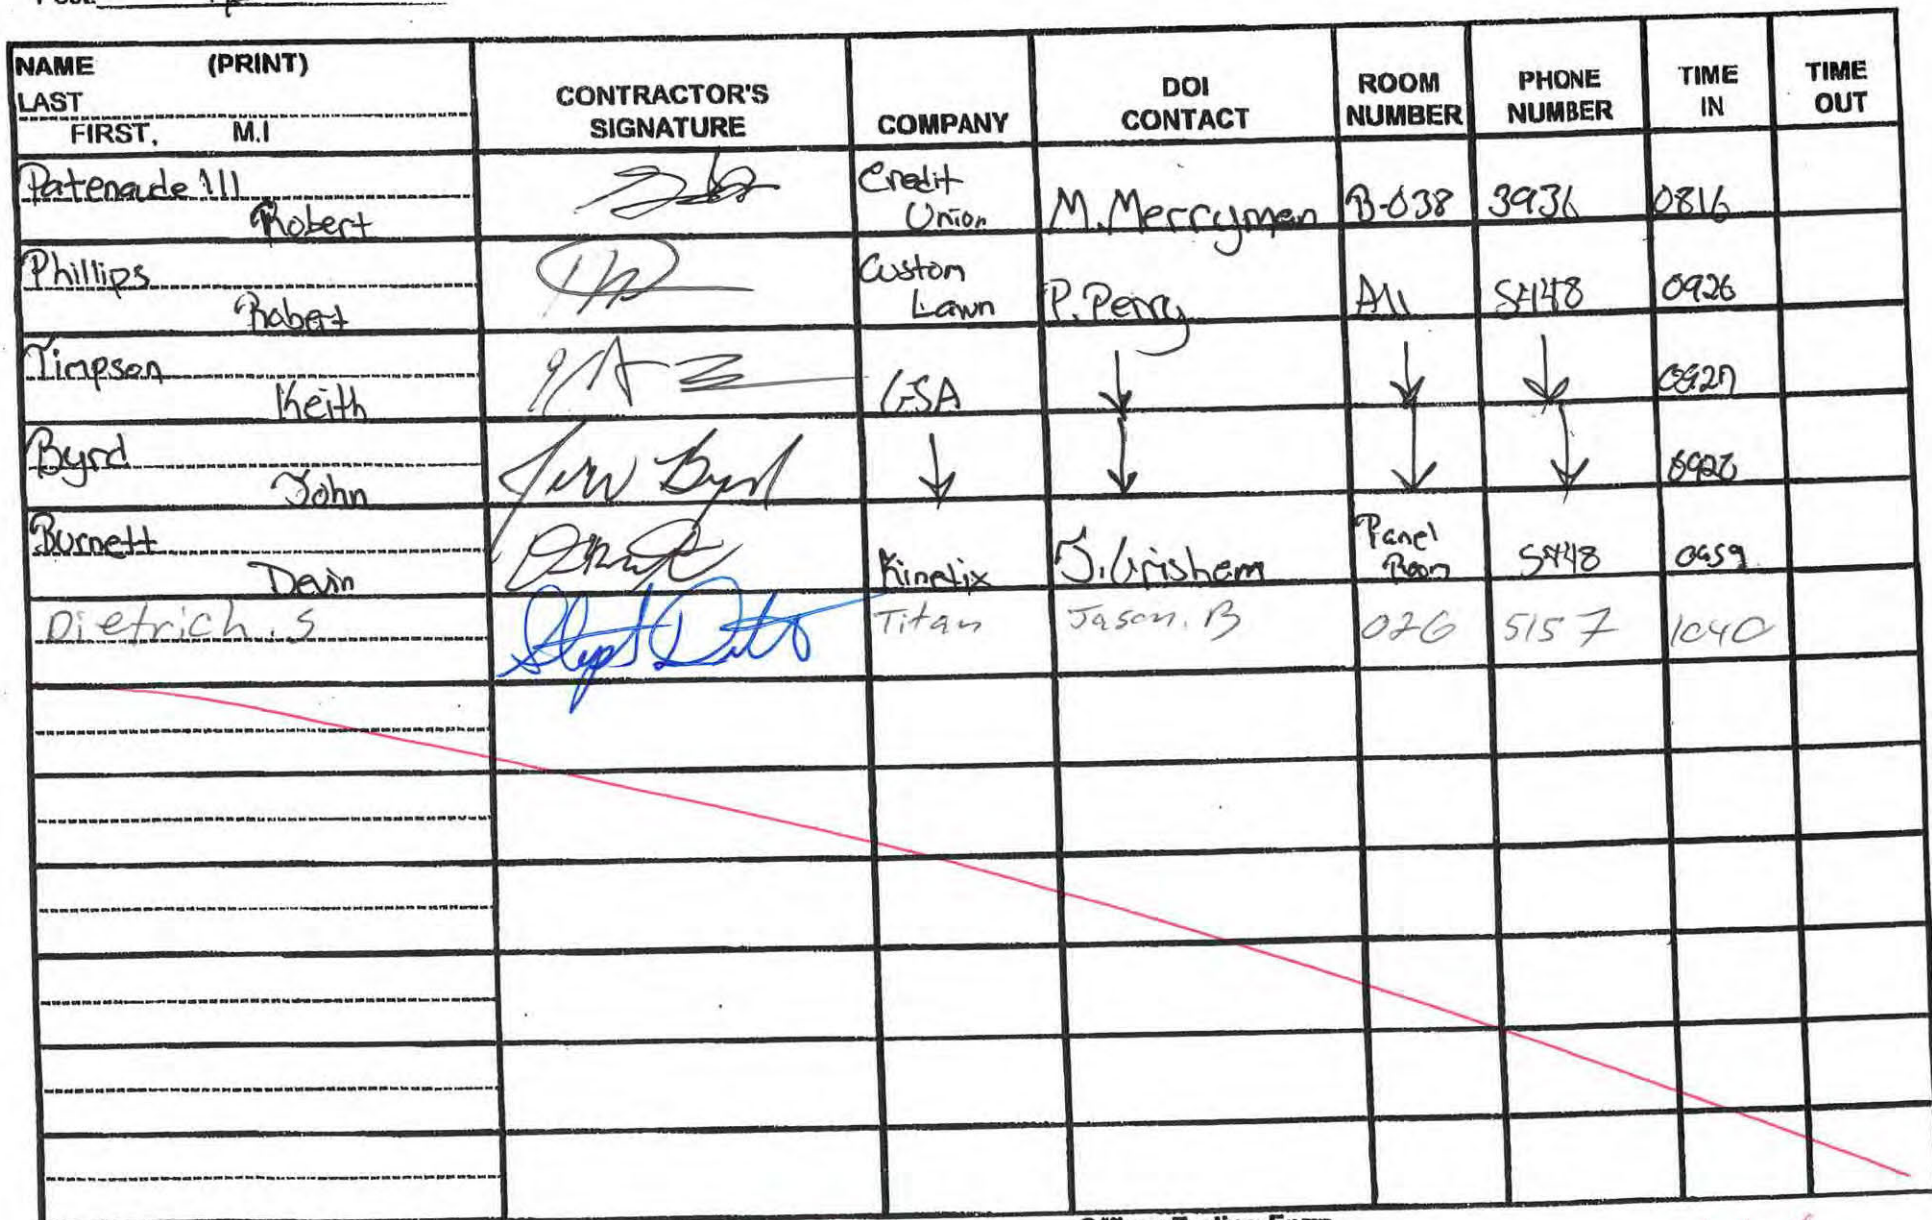 NAME (PRINT)
LAST
FIRST, M.I
CONTRACTOR'S
SIGNATURE
COMPANY
DOI
CONTACT
ROOM
NUMBER
PHONE
NUMBER
TIME
IN
TIME
OUT
Patenaude III
Robert
Credit
Union
M. Merryman
B-038
3936
0816
Phillips
Robert
Custom
Lawn
P. Perry
All
5448
0926
Timpson
Keith
GSA
↓
↓
↓
0927
Byrd
John
↓
↓
↓
↓
Burnett
Devin
Kinetix
J. Grisham
Panel
Room
5448
0959
Dietrich. S
Titan
Jason. B
026
5157
1040